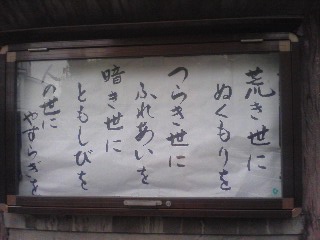 荒き世に
ぬくもりを
つらき世に
ふれあいを
暗き世に
ともしびを
人の世に
やすらぎを